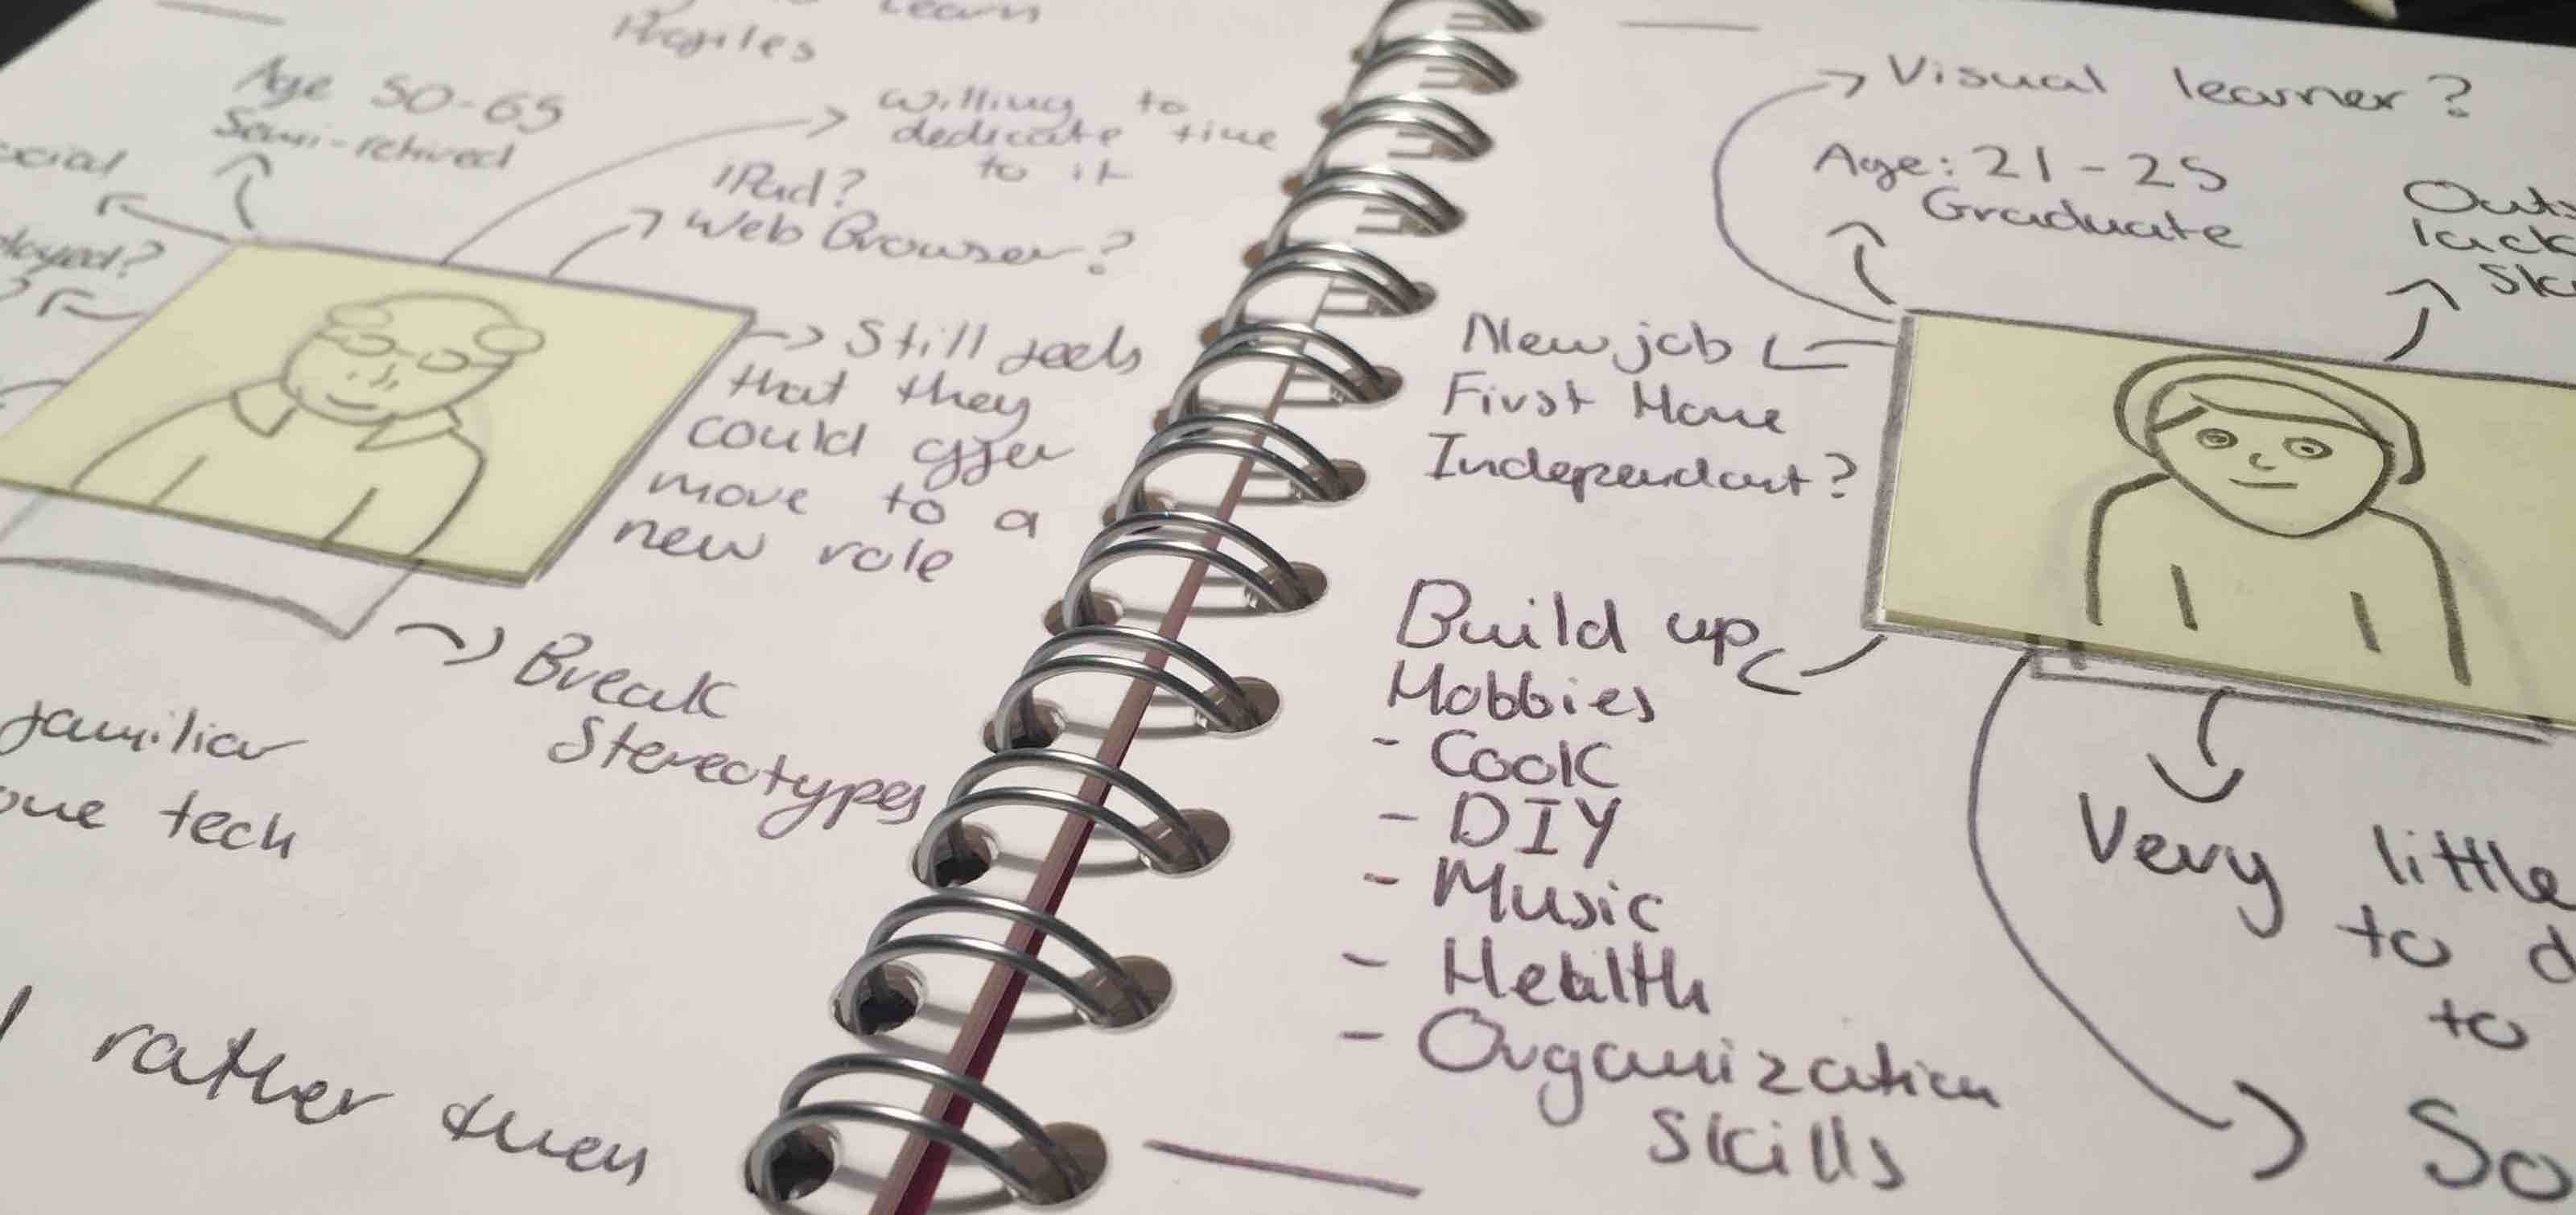 Learn
Profiles
Age 50-65
Semi-retired
willing to
dedicate time
to it
iPad?
Web Browser?
Still feels
that they
could offer
move to a
new role
Break
Stereotypes
familiar
tech
rather then
Visual learner?
Age: 21-25
Graduate
New job
First Home
Independant?
Build up
Hobbies
- Cook
- DIY
- Music
- Health
- Organization
Skills
Very little
to d
to
So